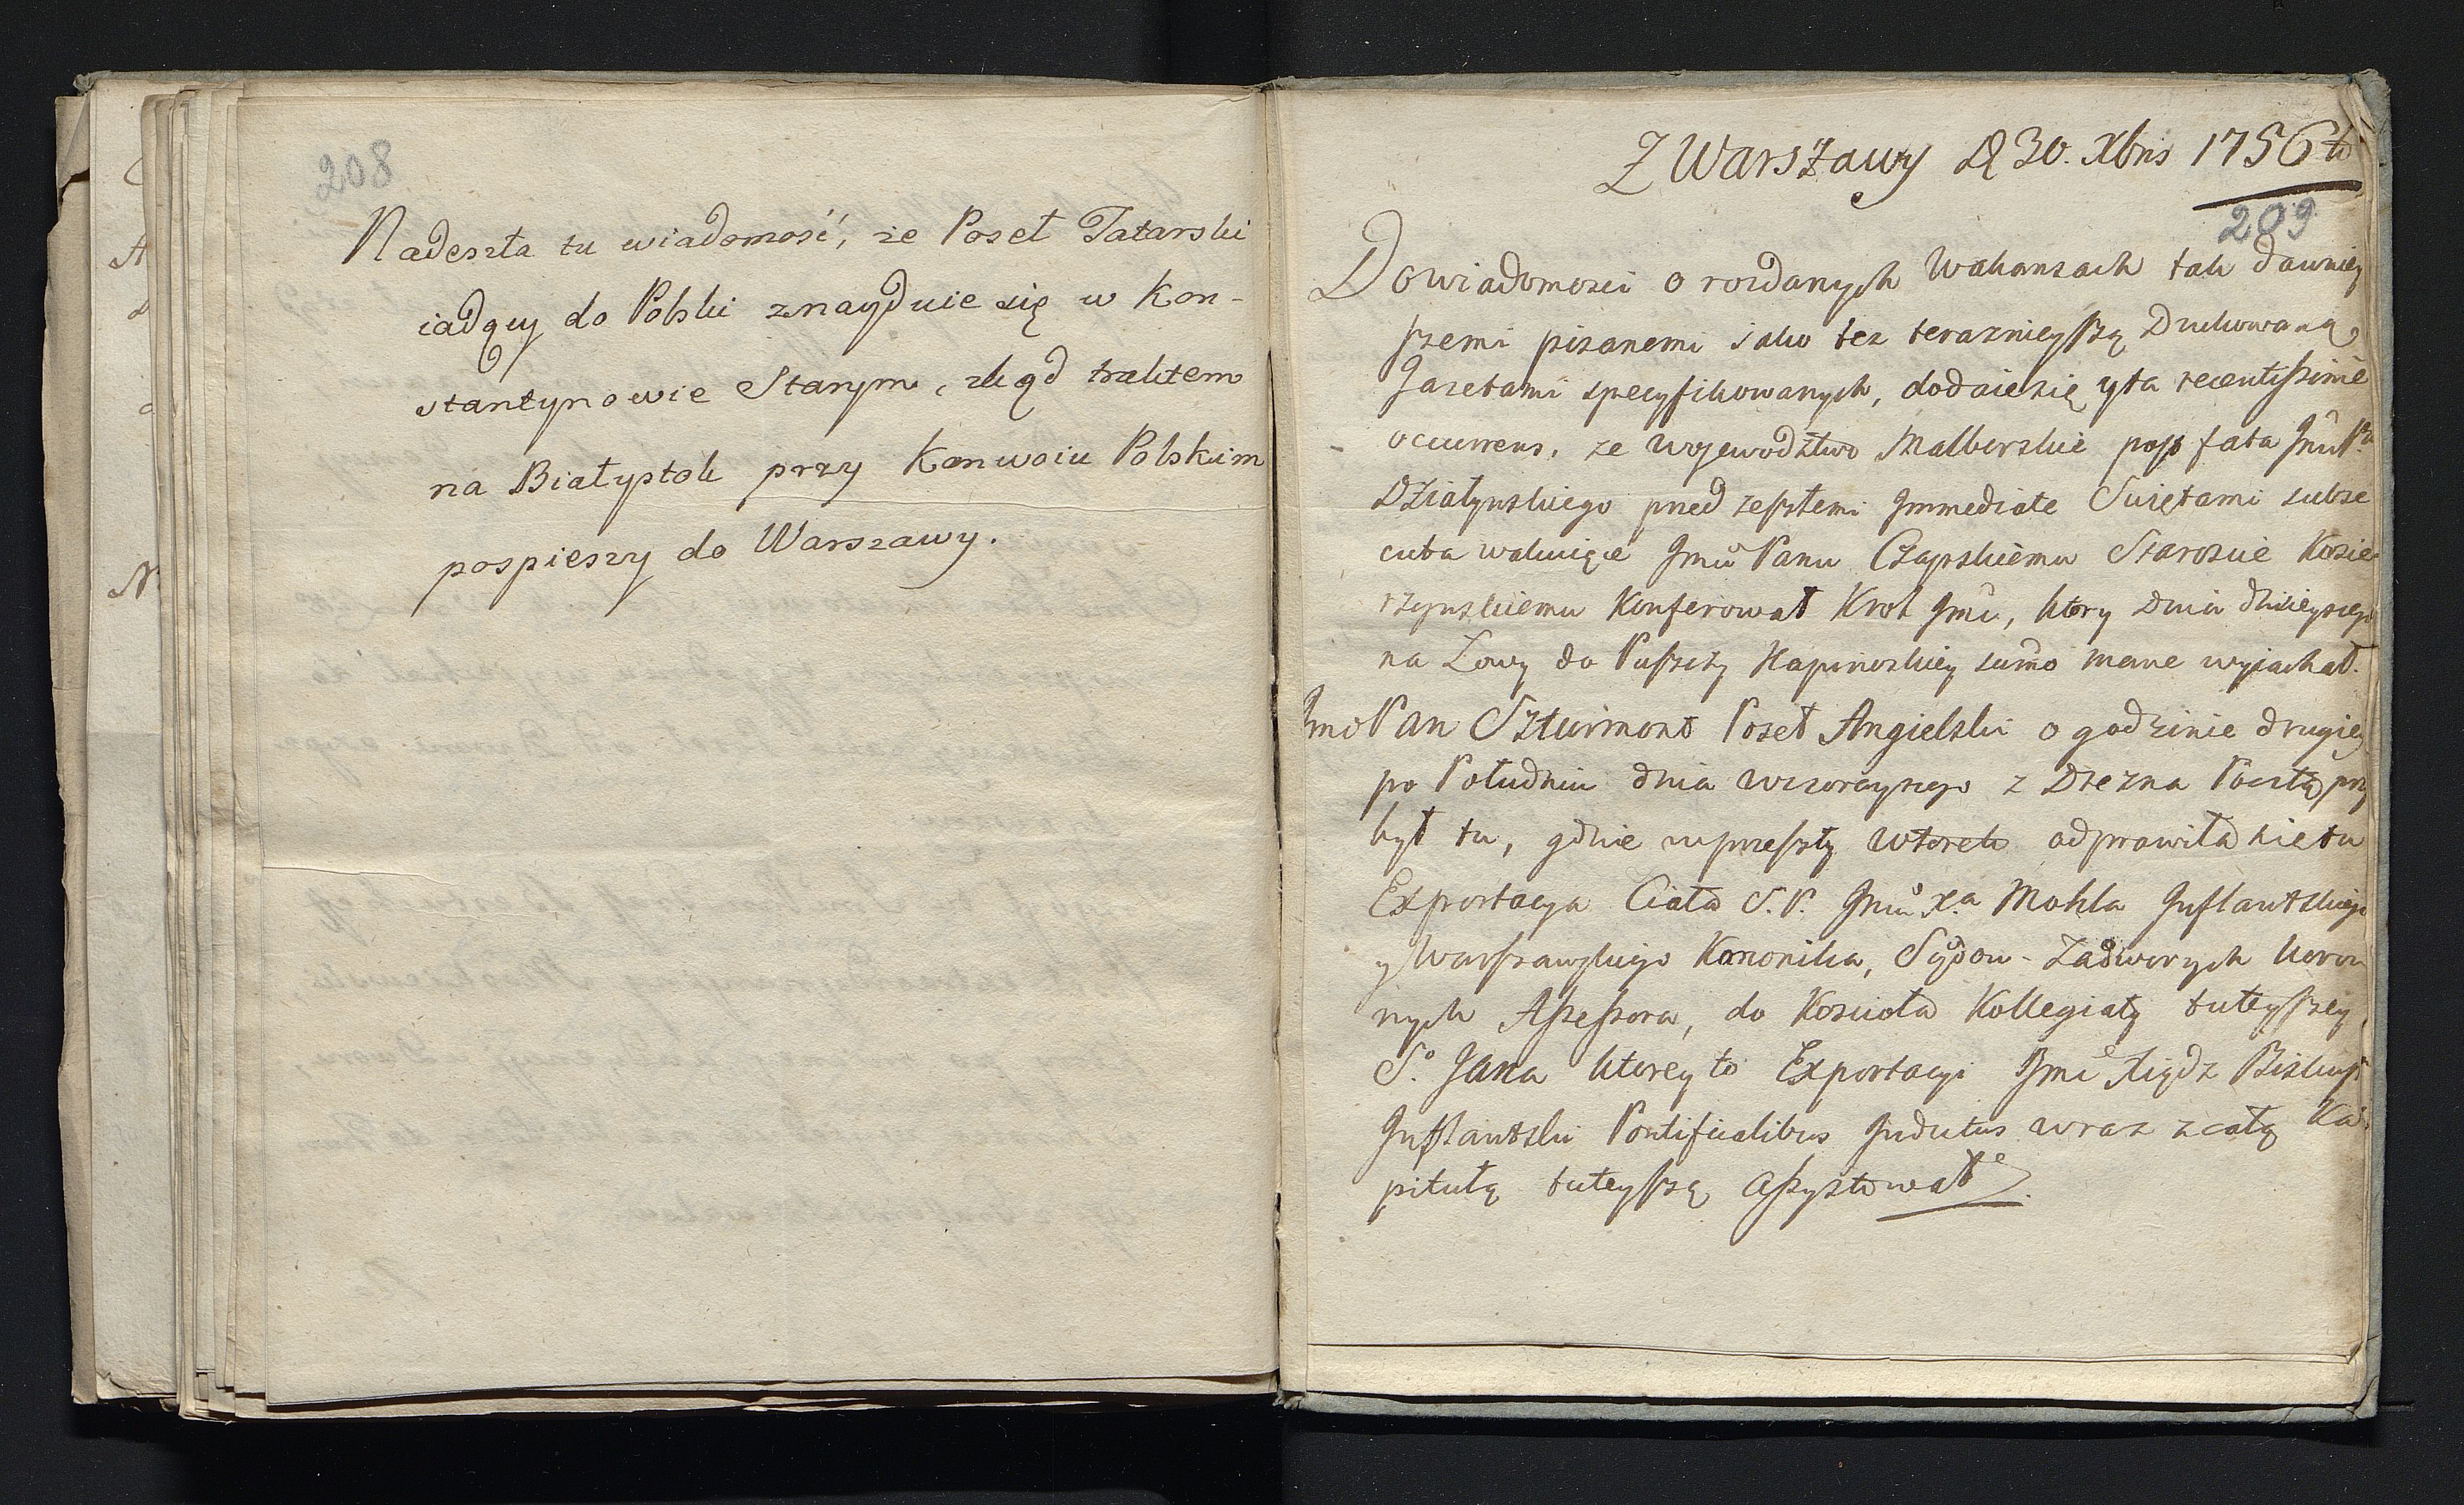 208
Nadeszła tu wiadomość, że Poseł Tatarski
iadący do Polski znayduie się w Kon-
stantynowie Starym, zkąd traktem
na Białystok przy Konwoiu Polskim
pospieszy do Warszawy.
Z Warszawy D 30. Xbris 1756to
209
Do wiadomosci o rozdanych Wakansach tak dawniey
szemi pisanemi iako tez teraznieyszą Drukowaną
Gazetami specyfikowanych, dodaie się y ta recentissime
occurrens, ze Wojewodztwo Malborskie post fata Jmci Pa
Dziatynskiego przed zeszłemi Immediate Swiętami subse
cuta wakuiące Jmci Panu Czapskiemu Staroscie Kosie
rzynskiemu Konferował Krol Jmci, ktory dnia dzisieyszego
na Łowy do Puszczy Kapinoskiey summo mane wyiachał.
Jmć Pan Szturmont Poseł Angielski o godzinie drugiey
po Południu dnia wczorayszego z Drezna Pocztą przy
był tu, gdzie w przeszły Wtorek odprawiła się tu
Exportacya Ciała S. P. Jmci Xa Mohla Inflantskiego
y Warszawskiego Kanonika, Sądow Zadwornych koron
nych Assessora, do Kosciola Kollegiaty tuteyszey
So Jana ktorey to Exportacyi Jmć Xiądz Biskup
Inflantski Pontificalibus Indutus wraz z całą Ka
pitułą tuteyszą assystował.